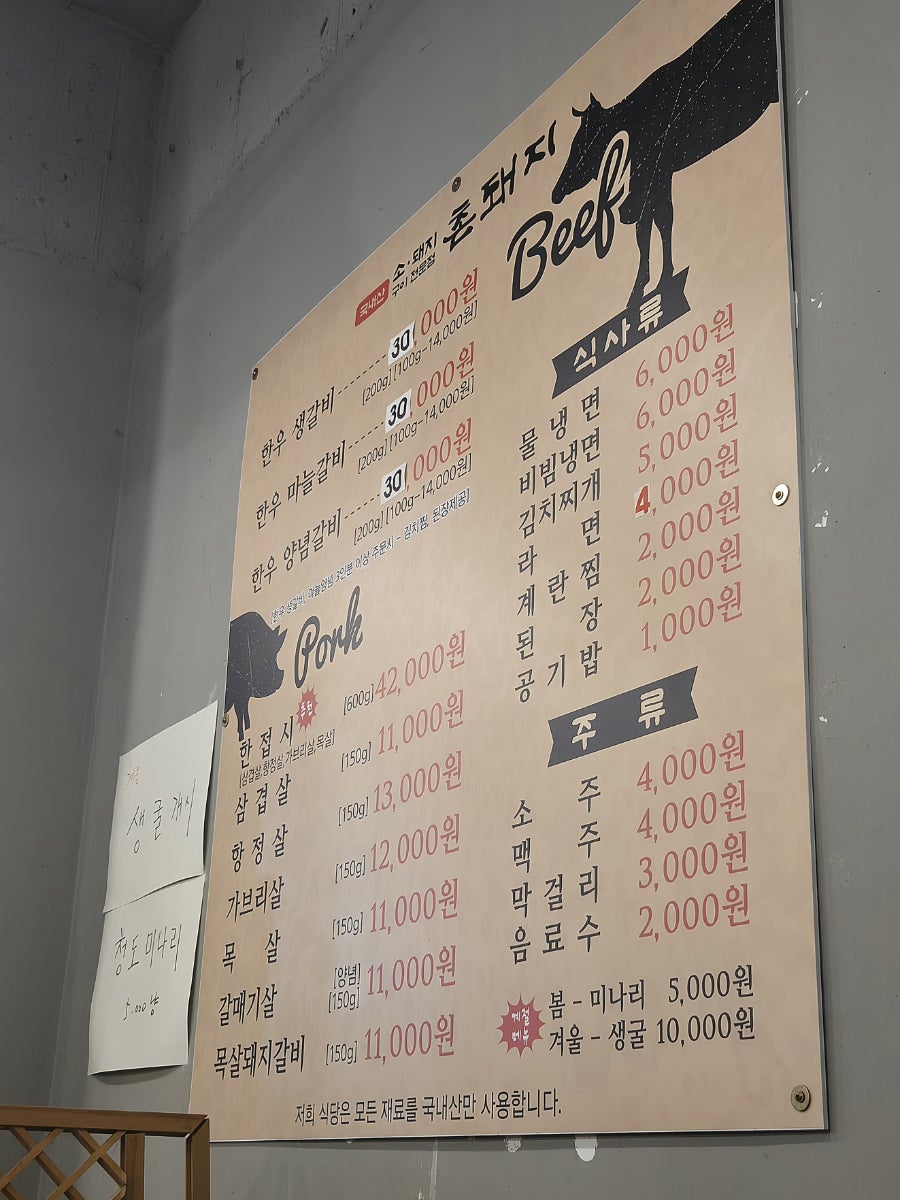 국내산 소·돼지 구이 전문점 촌돼지
Beef
한우 생갈비 30,000원
[200g] [100g-14,000원]
한우 마늘갈비 30,000원
[200g] [100g-14,000원]
한우 양념갈비 30,000원
[200g] [100g-14,000원]
[한우 생갈비, 마늘양념 3인분 이상 주문시 - 김치찜, 된장제공]
Pork
한접시 [600g] 42,000원
[삼겹살,항정살,가브리살,목살]
삼겹살 [150g] 11,000원
항정살 [150g] 13,000원
가브리살 [150g] 12,000원
목살 [150g] 11,000원
갈매기살 [양념] [150g] 11,000원
목살돼지갈비 [150g] 11,000원
식사류
물냉면 6,000원
비빔냉면 6,000원
김치찌개 5,000원
라면 4,000원
계란찜 2,000원
된장 2,000원
공기밥 1,000원
주류
소주 4,000원
맥주 4,000원
막걸리 3,000원
음료수 2,000원
계절메뉴
봄 - 미나리 5,000원
겨울 - 생굴 10,000원
저희 식당은 모든 재료를 국내산만 사용합니다.
생굴 개시
청도 미나리